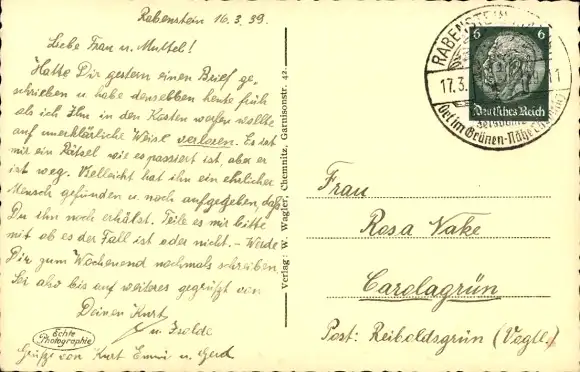 Rabenstein 16.3.39.
Liebe Frau u. Muttel!
Hatte Dir gestern einen Brief ge,
schrieben u. habe denselben heute früh
als ich Ihn in den Kasten werfen wollte
auf unerklärliche Weise verloren. Es ist
mir ein Rätsel wie es passiert ist, aber er
ist weg. Vielleicht hat ihn ein ehrlicher
Mensch gefunden u. noch aufgegeben, daß
Du ihn noch erhälst. Teile es mir bitte
mit ob es der Fall ist oder nicht. – Werde
Dir zum Wochenend nochmals schreiben.
Sei also bis auf weiteres gegrüßt von
Deinen Kurt
u. Isolde
Grüße von Kurt Emmi u. Gerd
Echte
Photographie
Verlag: W. Wagler, Chemnitz, Garnisonstr. 42.
RABENSTEIN
17.3.
11
6 6
Deutsches Reich
der im Grünen-Nähe Chemnitz
Frau
Rosa Nake
Carolagrün
Post: Reiboldsgrün (Vogtl.)